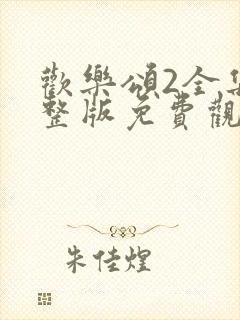 歡樂頌2全集
整版免費觀
朱佳煌